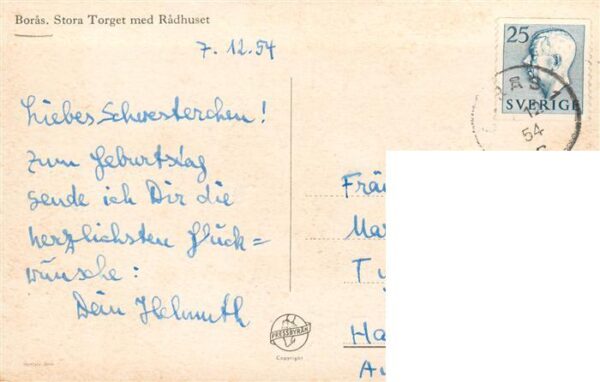 Borås. Stora Torget med Rådhuset
7.12.54
Liebes Schwesterchen!
zum Geburtstag
sende ich Dir die
herzlichsten Glück=
wünsche:
Dein Helmuth
25
SVERIGE
54
PRESSBYRÅN
Copyright